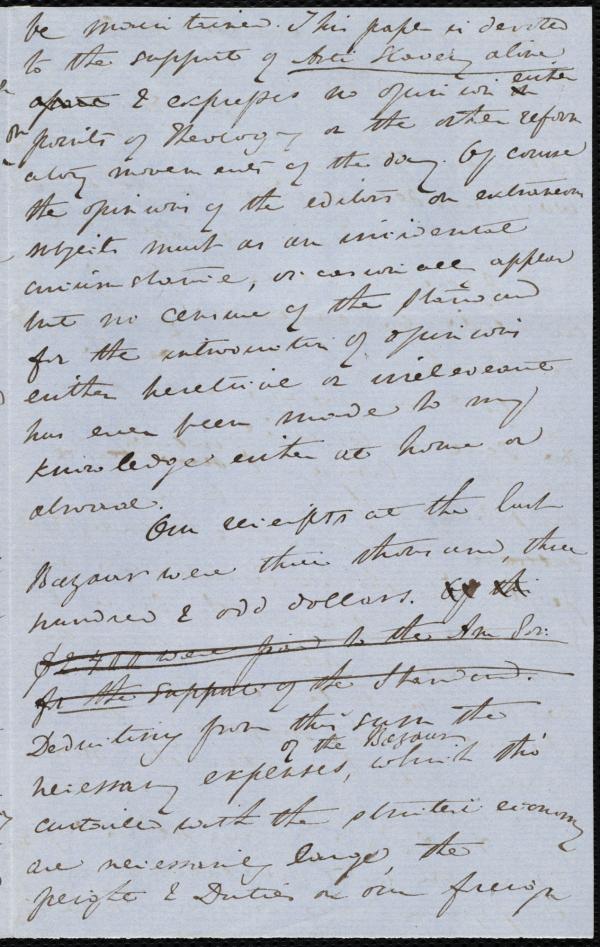 be maintained. This paper is devoted
to the support of Anti Slavery alone
apart & expresses no opinion either
points of Theology or the other reform
atory movements of the day. Of course
the opinions of the editors on extraneous
subjects must as an incidental
circumstance, occasionally appear
but no censure of the Standard
for the introduction of opinions
either heretical or irrelevant
has ever been made to my
knowledge either at home or
abroad.
Our receipts at the last
Bazaar were three thousand, three
hundred & odd dollars. Of this
$2400 were paid to the Am Soc:
for the support of the Standard.
Deducting from this sum the
of the Bazaar
necessary expenses, which tho'
curtailed with the strictest economy
are necessarily large, the
freight & Duties on our foreign